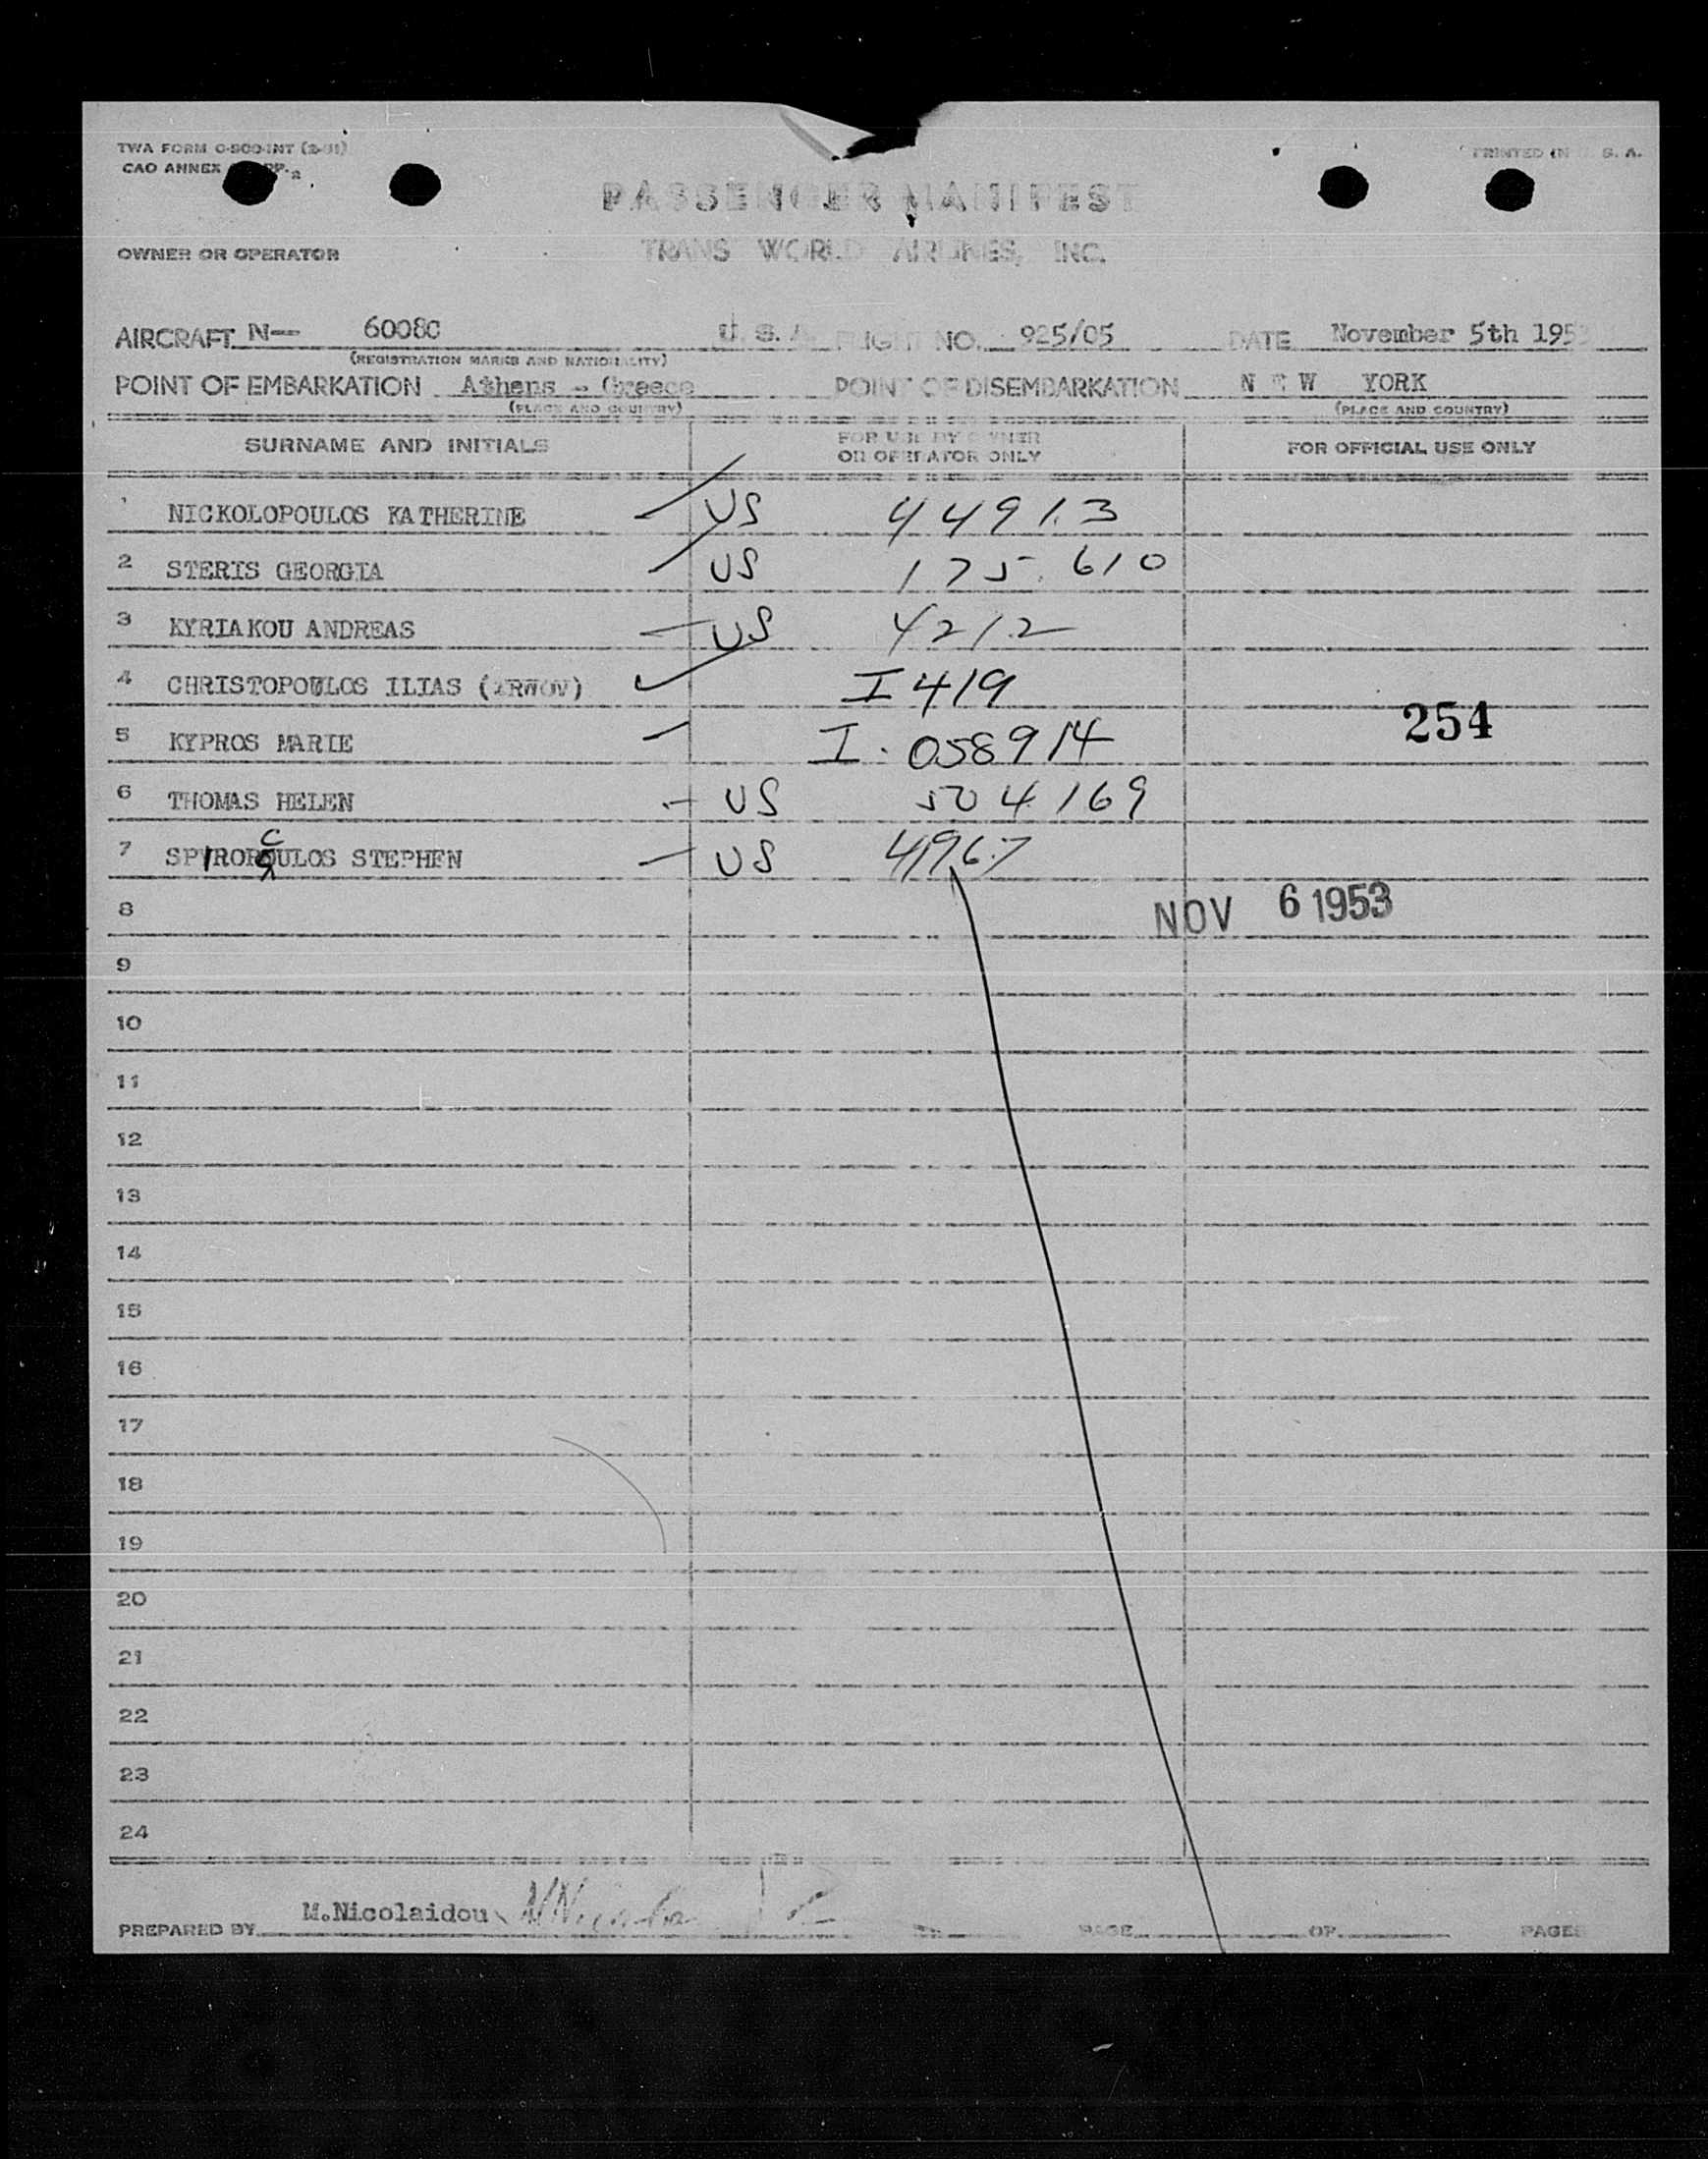 TWA FORM O-800-INT (2-51) PRINTED IN U. S. A.
CAO ANNEX
PASSENGER MANIFEST
OWNER OR OPERATOR TRANS WORLD AIRLINES, INC.
AIRCRAFT N-- 6008C U. S. A FLIGHT NO. 925/05 DATE November 5th 1953
(REGISTRATION MARKS AND NATIONALITY)
POINT OF EMBARKATION Athens - Greece POINT OF DISEMBARKATION NEW YORK
(PLACE AND COUNTRY) (PLACE AND COUNTRY)
SURNAME AND INITIALS FOR USE BY OWNER OR OPERATOR ONLY FOR OFFICIAL USE ONLY
1 NICKOLOPOULOS KATHERINE US 44913
2 STERIS GEORGIA US 175.610
3 KYRIAKOU ANDREAS US 4212
4 CHRISTOPOULOS ILIAS (IRWOV) I 419
254
5 KYPROS MARIE I. 058914
6 THOMAS HELEN US 504169
7 SPIROPOULOS STEPHEN US 4967
8 NOV 6 1953
9
10
11
12
13
14
15
16
17
18
19
20
21
22
23
24
PREPARED BY M.Nicolaidou PAGE OF PAGES